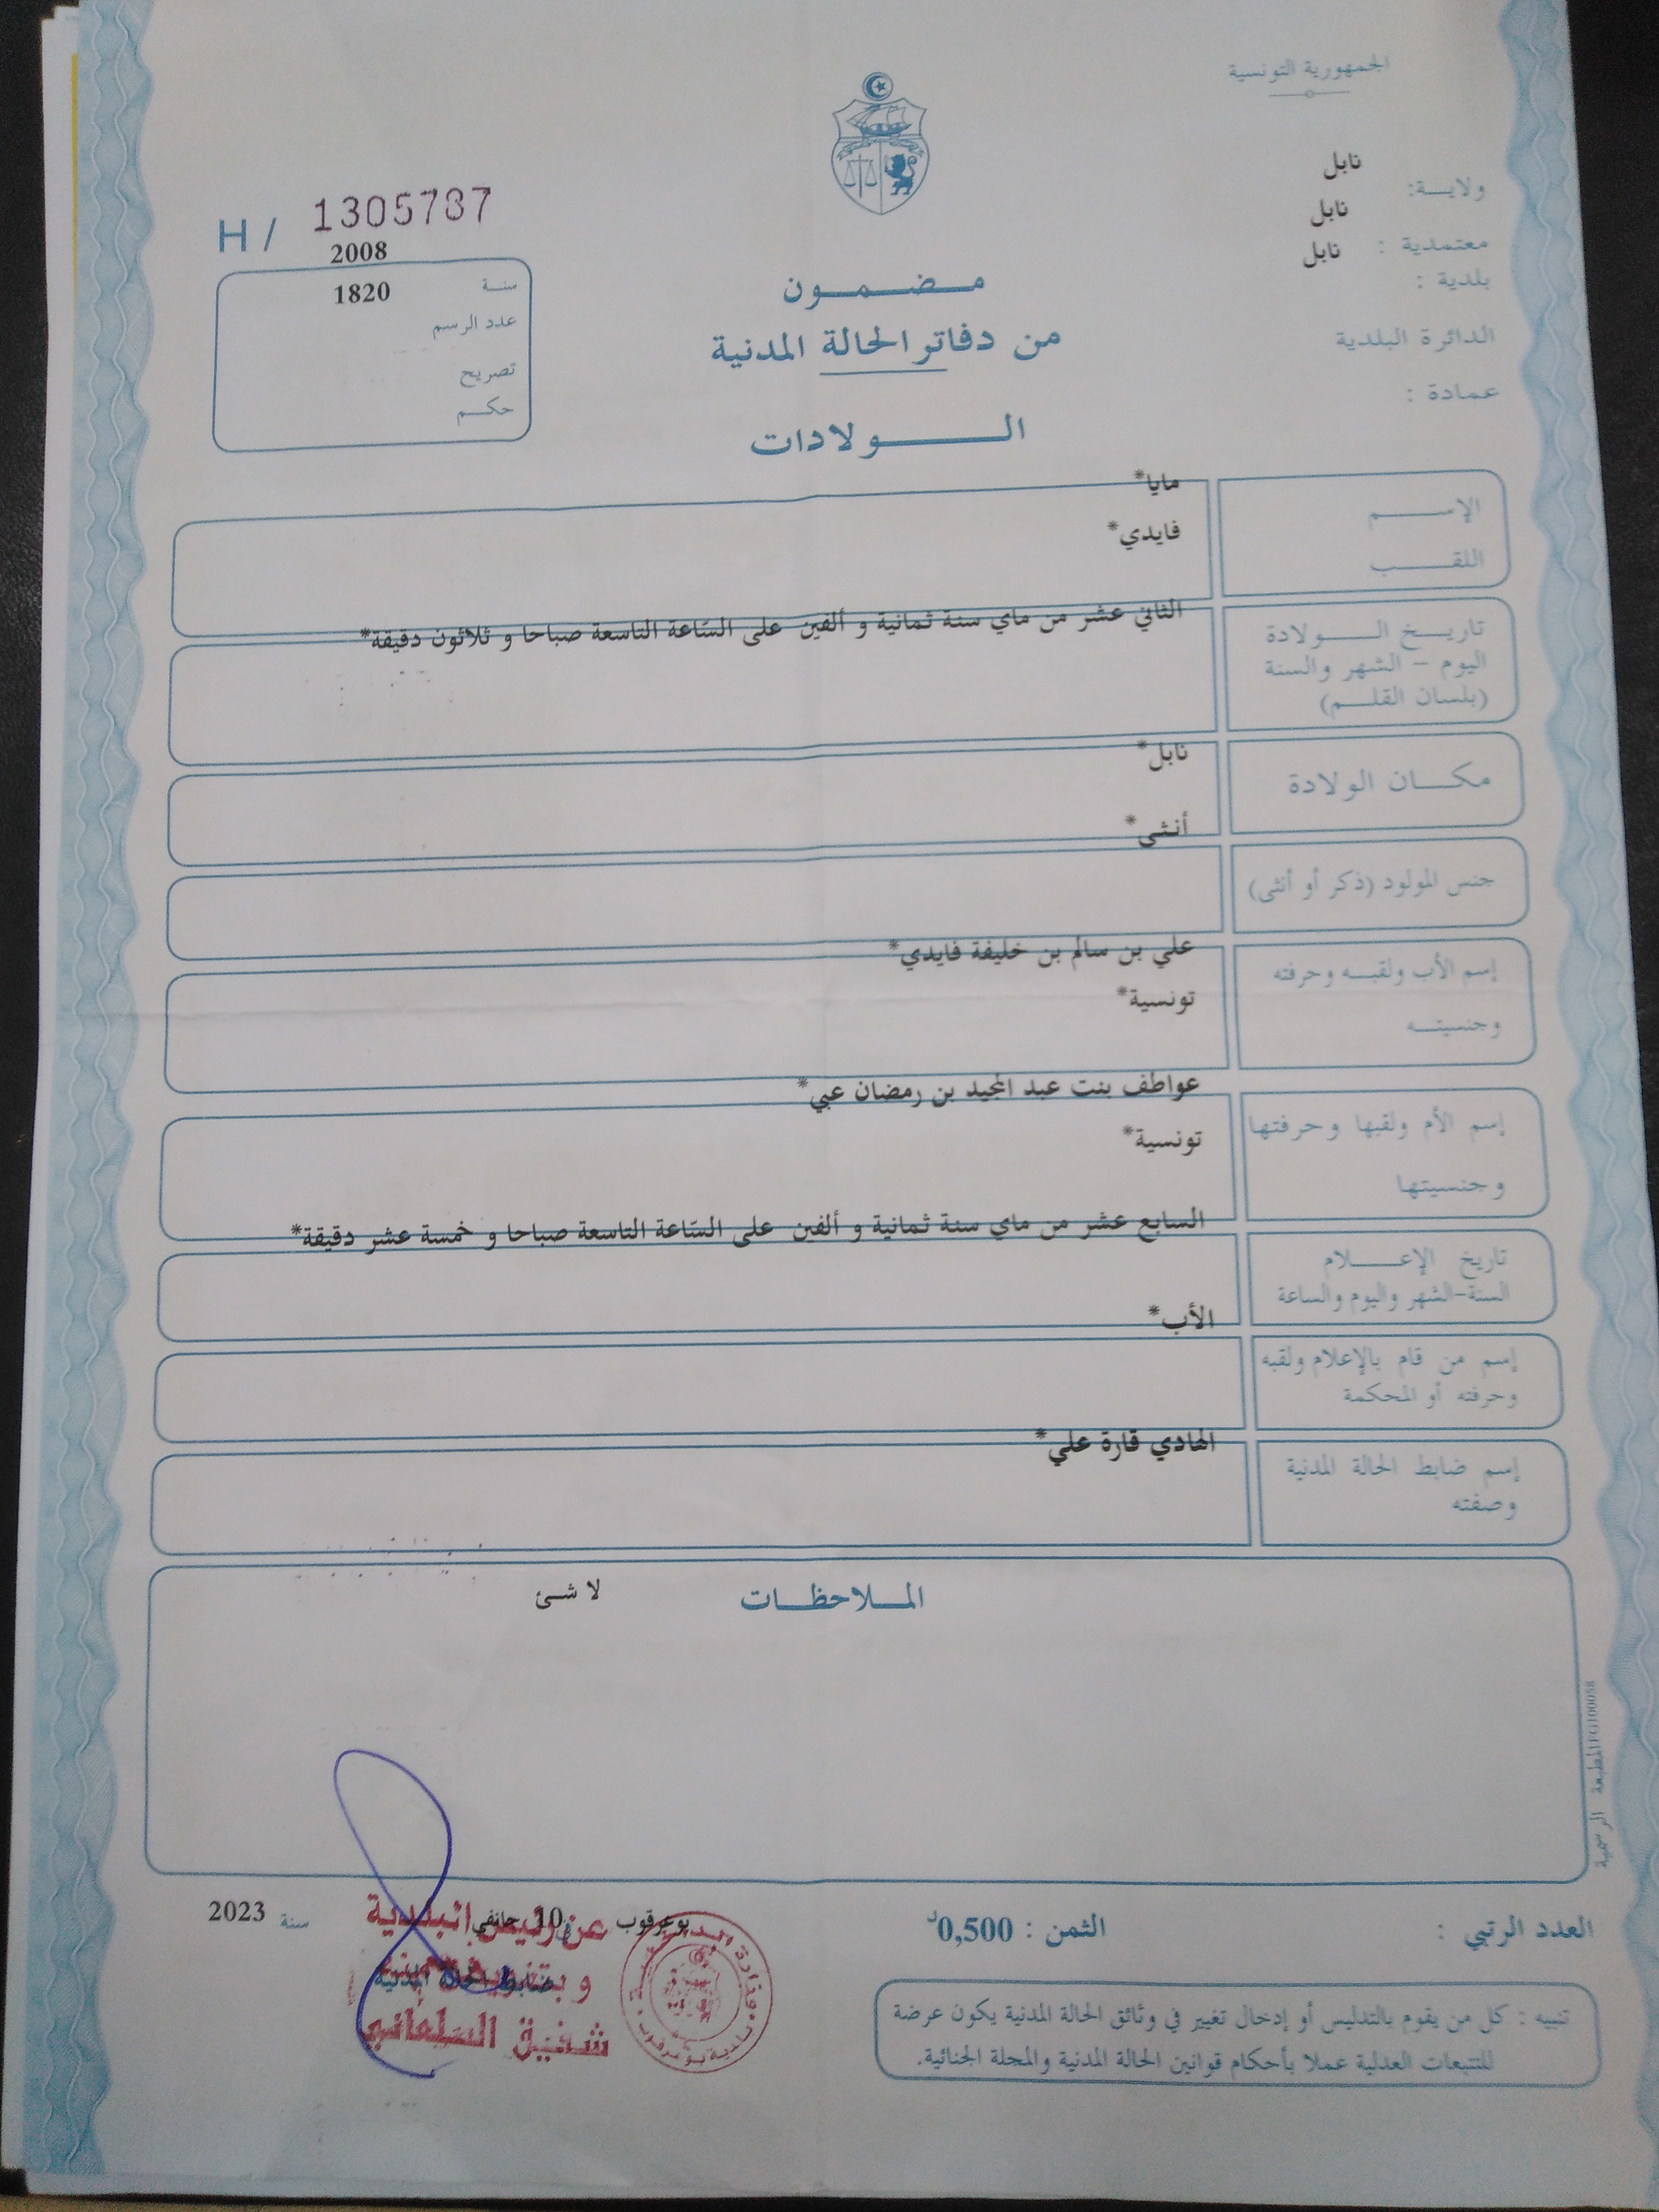 الجمهورية التونسية
ولاية: نابل
معتمدية : نابل
بلدية : نابل
الدائرة البلدية
عمادة :
H / 1305787
2008
سنة
1820
عدد الرسم
تصريح
حكم
مضمون
من دفاتر الحالة المدنية
الولادات
الإسم
مايا*
اللقب
فايدي*
تاريخ الولادة
اليوم - الشهر والسنة
(بلسان القلم)
الثاني عشر من ماي سنة ثمانية و ألفين على السّاعة التاسعة صباحا و ثلاثون دقيقة*
مكان الولادة
نابل*
جنس المولود (ذكر أو أنثى)
أنثى*
إسم الأب ولقبه وحرفته
وجنسيته
علي بن سالم بن خليفة فايدي*
تونسية*
إسم الأم ولقبها وحرفتها
وجنسيتها
عواطف بنت عبد المجيد بن رمضان عبي*
تونسية*
تاريخ الإعلام
السنة-الشهر واليوم والساعة
السابع عشر من ماي سنة ثمانية و ألفين على السّاعة التاسعة صباحا و خمسة عشر دقيقة*
إسم من قام بالإعلام ولقبه
وحرفته أو المحكمة
الأب*
إسم ضابط الحالة المدنية
وصفته
الهادي قارة علي*
الملاحظات
لا شئ
المطبعة الرسمية
العدد الرتبي :
الثمن : 0,500د
بوعرقوب في 10 جانفي سنة 2023
ضابط الحالة المدنية
عن رئيس البلدية
و بتفويض منه
شفيق السلماني
بلدية بوعرقوب
تنبيه : كل من يقوم بالتدليس أو إدخال تغيير في وثائق الحالة المدنية يكون عرضة
للتتبعات العدلية عملا بأحكام قوانين الحالة المدنية والمجلة الجنائية.